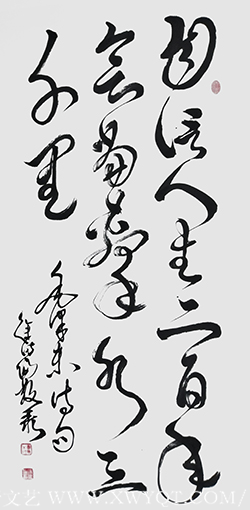 自信人生二百年
会当击水三
千里
毛泽东诗句
文艺 WWW.XWYQT.COM